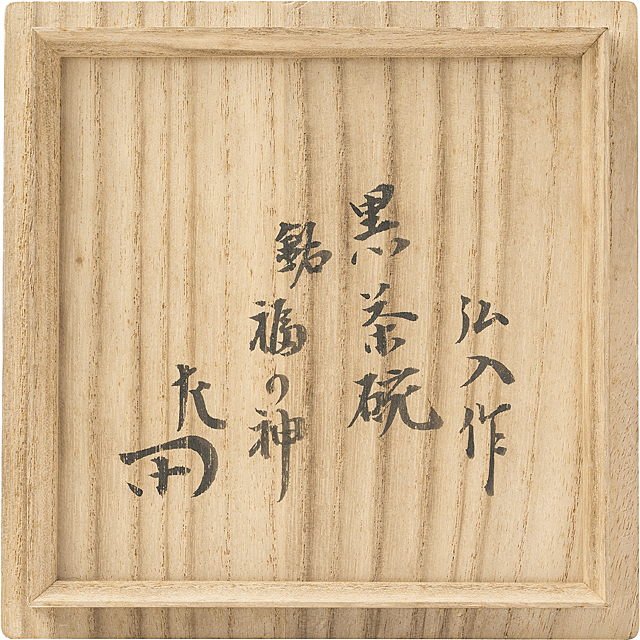 弘入作
黒茶碗
銘 福の神
左